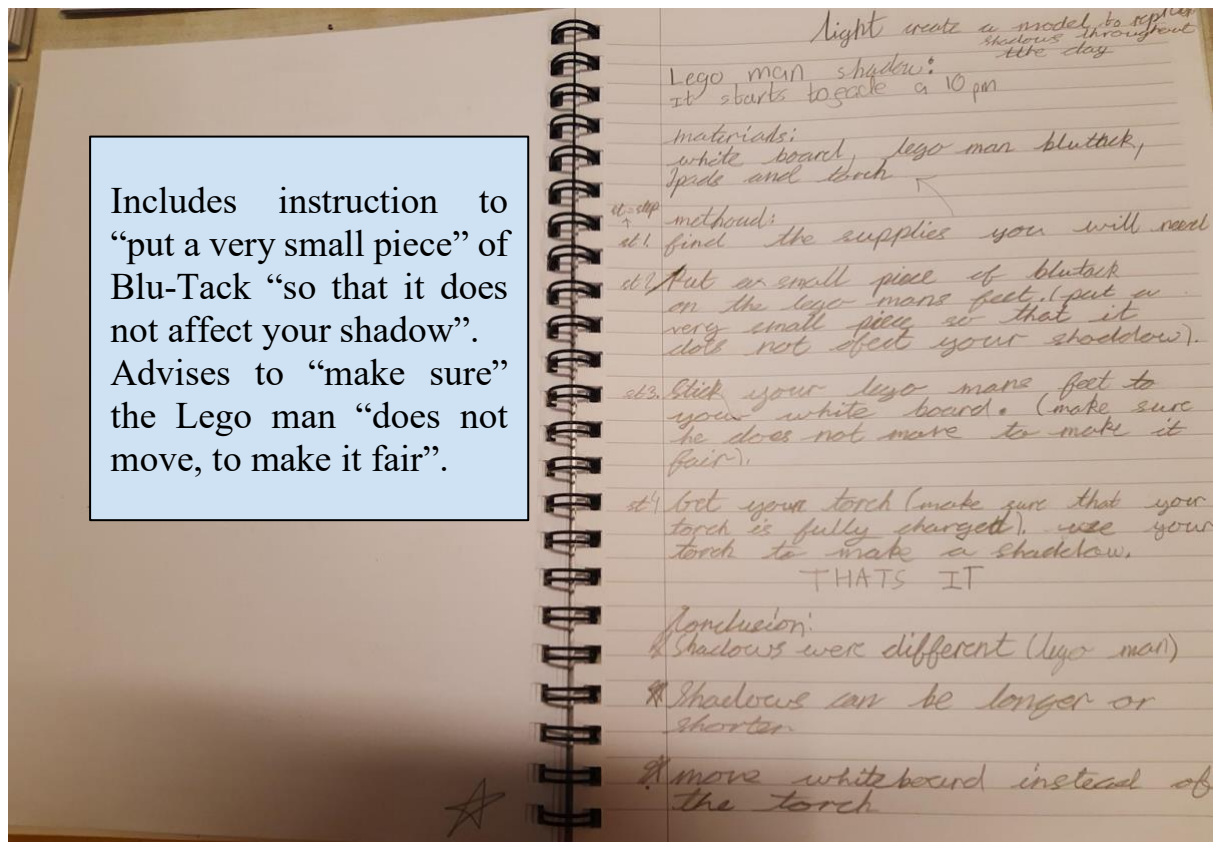 Includes instruction to
“put a very small piece” of
Blu-Tack “so that it does
not affect your shadow”.
Advises to “make sure”
the Lego man “does not
move, to make it fair”.
light create a model to
shadows throughout
the day
Lego man shadow:
It starts to a 10 pm
materials:
white board, lego man bluttack,
Ipads and torch
st=step
methoud:
st1. find the supplies you will need
st2 Put a small piece of blutack
on the lego mans feet. (put a
very small piece so that it
dots not efect your shaddow).
st3. Stick your lego mans feet to
your white board. (make sure
he does not move to make it
fair).
st4 Get your torch (make sure that your
torch is fully charged). use your
torch to make a shaddow.
THATS IT
Conclusion:
Shadows were different (lego man)
Shadows can be longer or
shorter
move whiteboard instead of
the torch